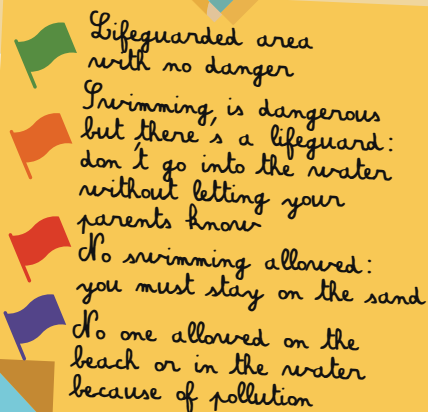 Lifeguarded area
with no danger
Swimming is dangerous
but there's a lifeguard:
don't go into the water
without letting your
parents know
No swimming allowed:
you must stay on the sand
No one allowed on the
beach or in the water
because of pollution